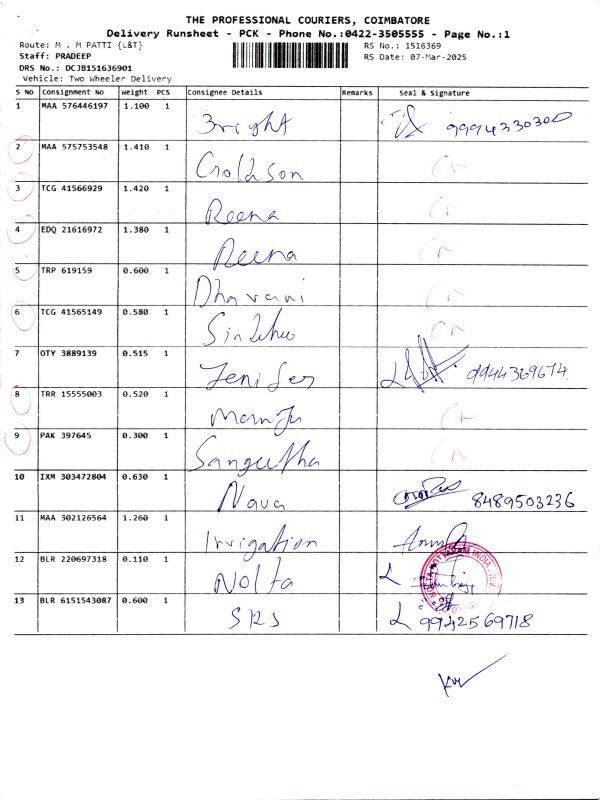 THE PROFESSIONAL COURIERS, COIMBATORE
Delivery Runsheet - PCK - Phone No.:0422-3505555 - Page No.:1
Route: M . M PATTI {L&T} RS No.: 1516369
Staff: PRADEEP RS Date: 07-Mar-2025
DRS No.: DCJB151636901
Vehicle: Two Wheeler Delivery
S No Consignment No Weight PCS Consignee Details Remarks Seal & Signature
1 MAA 576446197 1.100 1 Bright 9994330300
2 MAA 575753548 1.410 1 Goldson Cr
3 TCG 41566929 1.420 1 Reena Cr
4 EDQ 21616972 1.380 1 Reena Cr
5 TRP 619159 0.600 1 Dharani Cr
6 TCG 41565149 0.580 1 Sindhu Cr
7 OTY 3889139 0.515 1 Jenifer 9944369674
8 TRR 15555003 0.520 1 Manju Cr
9 PAK 397645 0.300 1 Sangeetha Cr
10 IXM 303472804 0.630 1 Nava 8489503236
11 MAA 302126564 1.260 1 Irrigation
12 BLR 220697318 0.110 1 Nolta
13 BLR 6151543087 0.600 1 SRS 9942569718